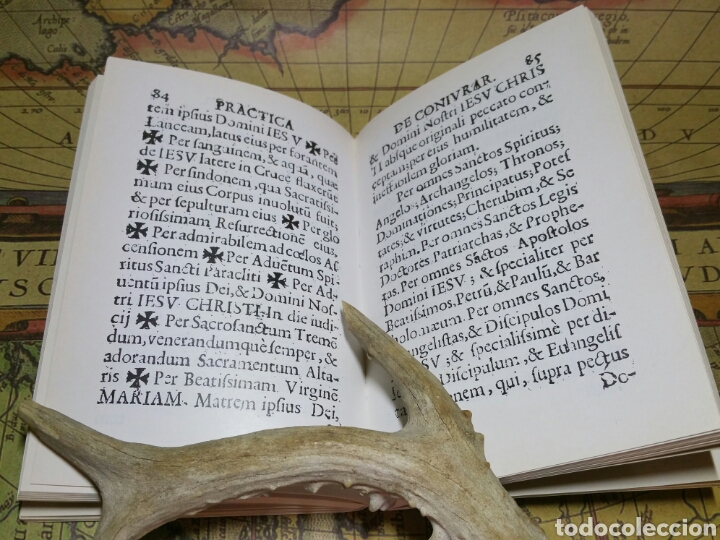 84 PRACTICA
tem ipsius Domini IESV ✠ Per
Lanceam, latus eius per forantem
✠ Per sanguinem, & aquā, quæ
de IESV latere in Cruce fluxerūt
✠ Per sindonem, qua Sacratissi
mum eius Corpus inuolutū fuit;
& per sepulturam eius ✠ Per glo
riosissimam Resurrectionē eius,
✠ Per admirabilem ad cœlos As
censionem ✠ Per Aduētum Spi
ritus Sancti Paracliti ✠ Per Ad,
uentū ipsius Dei, & Domini Nos
tri IESV CHRISTI, In die iudi
cij ✠ Per Sacrosanctum Tremē
dum, venerandumquè semper, &
adorandum Sacramentum Alta
ris ✠ Per Beatissimam Virginē
MARIAM. Matrem ipsius Dei,
DE CONIVRAR. 85
& Domini Nostri IESV CHRIS
TI absque originali peccato con
ceptam; per eius humilitatem, &
ineffabilem gloriam.
Per omnes Sanctos Spiritus;
Angelos; Archangelos; Thronos;
Dominationes; Principatus; Potes
tates; & virtutes; Cherubim, & Se
raphim. Per omnes Sanctos Legis
Doctores Patriarchas, & Prophe-
tas. Per omnes Sāctos Apostolos
Domini IESV; & specialiter per
Beatissimos. Petrū, & Paulū, & Bar
tholomæum. Per omnes Sanctos,
Evangelistas, & Discipulos Domi
IESV, & specialissimè per di
Discipulum, & Euangelis
nem, qui, supra pectus
Do-
todocoleccion
Archipe
lago
Calis